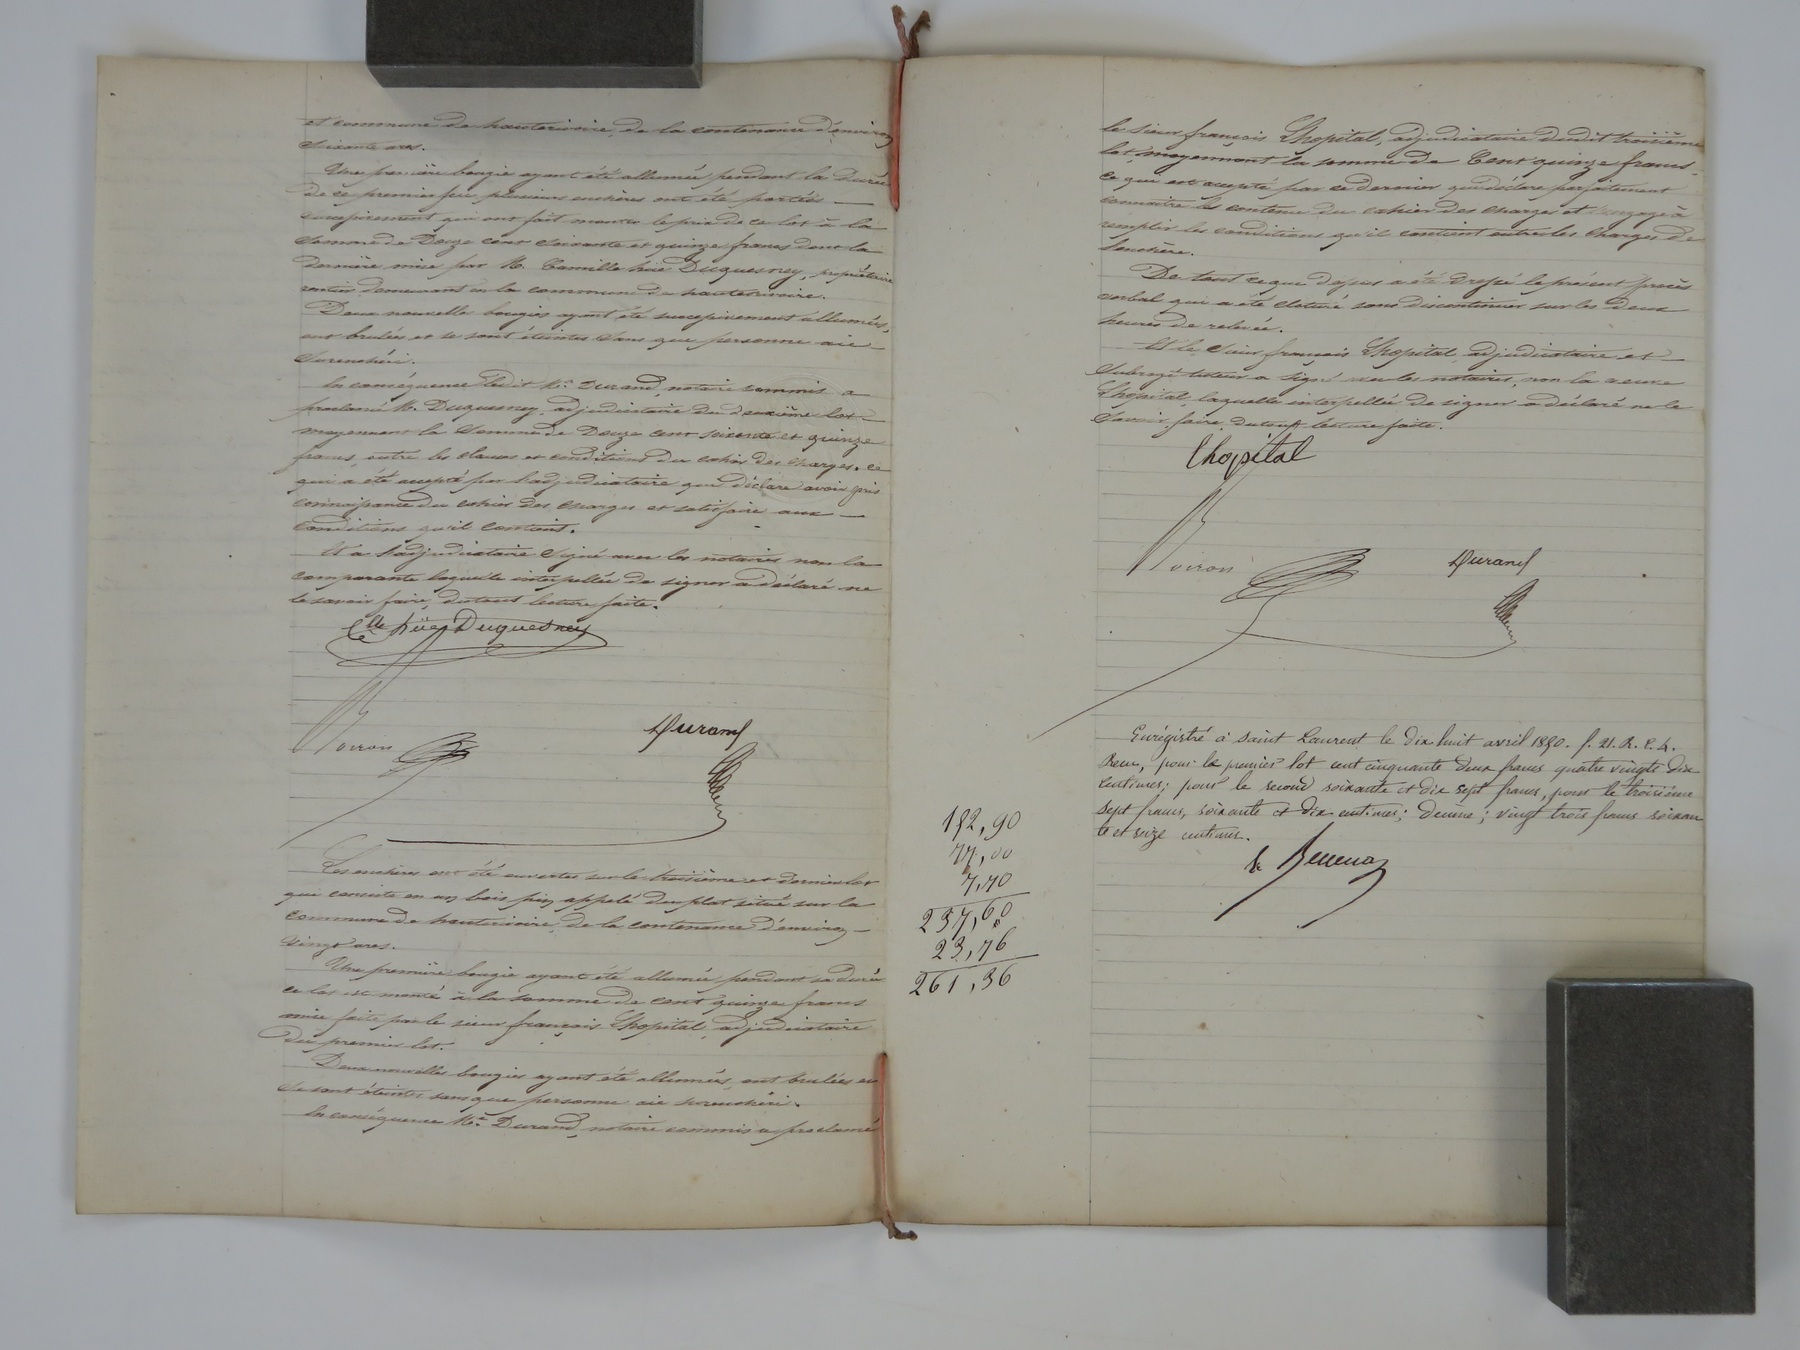 et commune de hauterivoire, de la contenance d'environ
soixante ares.
Une première bougie ayant été allumée pendant la durée
de ce premier feu plusieurs enchères ont été portées
successivement qui ont fait monter le prix de ce lot à la
somme de Douze cent soixante et quinze francs dont la
dernière mise par M. Camille hüe Duquesney, propriétaire
rentier demeurant en la commune de hauterivoire.
Deux nouvelle bougies ayant été successivement allumées,
ont brulées et se sont éteintes sans que personne aie
surenchéri.
En conséquence ledit Me Durand, notaire commis a
proclamé M. Duquesney, adjudicataire du deuxième lot
moyennant la somme de Douze cent soixante et quinze
francs, outre les clauses et conditions du cahier des charges. ce
qui a été accepté par l'adjudicataire qui déclare avoir pris
connaissance du cahier des charges et satisfaire aux
conditions qu'il contient.
Et a l'adjudicataire signé avec les notaires non la
comparante laquelle interpellée de signer a déclaré ne
le savoir faire, du tout lecture faite.
Clle hüe Duquesney
Voiron Durand
Les enchères ont été ouvertes sur le troisième et dernier lot
qui consiste en un bois pin appelé du plat situé sur la
commune de hauterivoire, de la contenance d'environ
vingt ares.
Une première bougie ayant été allumée pendant sa durée
ce lot est monté à la somme de cent quinze francs
mise faite par le sieur françois Lhopital, adjudicataire
du premier lot.
Deux nouvelles bougies ayant été allumées, ont brulées et
se sont éteintes sans que personne aie surenchéri.
En conséquence Me Durand, notaire commis a proclamé
le sieur françois Lhopital, adjudicataire dudit troisième
lot, moyennant la somme de Cent quinze francs.
ce qui est accepté par ce dernier qui déclare parfaitement
connaitre le contenu du cahier des charges et s'engage à
remplir les conditions qu'il contient outre les charges de
l'enchère.
De tout ce que dessus a été dressé le présent procès
verbal qui a été cloturé sans discontinuer sur les deux
heures de relevée.
Et le sieur françois Lhopital adjudicataire et
subrogé tuteur a signé avec les notaires, non la veuve
Lhopital, laquelle interpellée de signer a déclaré ne le
savoir faire, du tout lecture faite.
Lhopital
Voiron Durand
Enrégistré à Saint Laurent le dix huit avril 1850. f. 21. R. C. 4.
Reçu, pour le premier lot cent cinquante deux francs quatre vingts dix
centimes; pour le second soixante et dix sept francs, pour le troisième
sept francs, soixante et dix centimes; décime; vingt trois francs soixan
te et seize centimes.
152,90
77,00
7,70
237,60
23,76
261,36